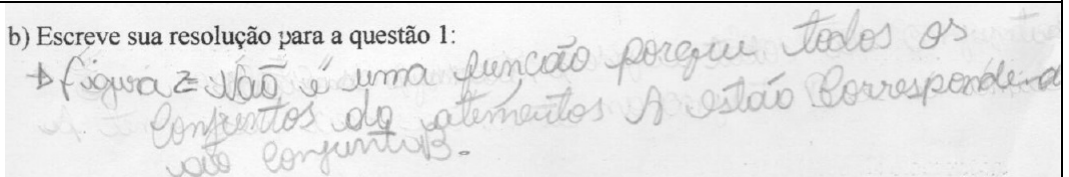 b) Escreve sua resolução para a questão 1:
figura 2 Não é uma função porque todos os
Conjuntos do atementos A estão Correspondend
ao conjunto B.